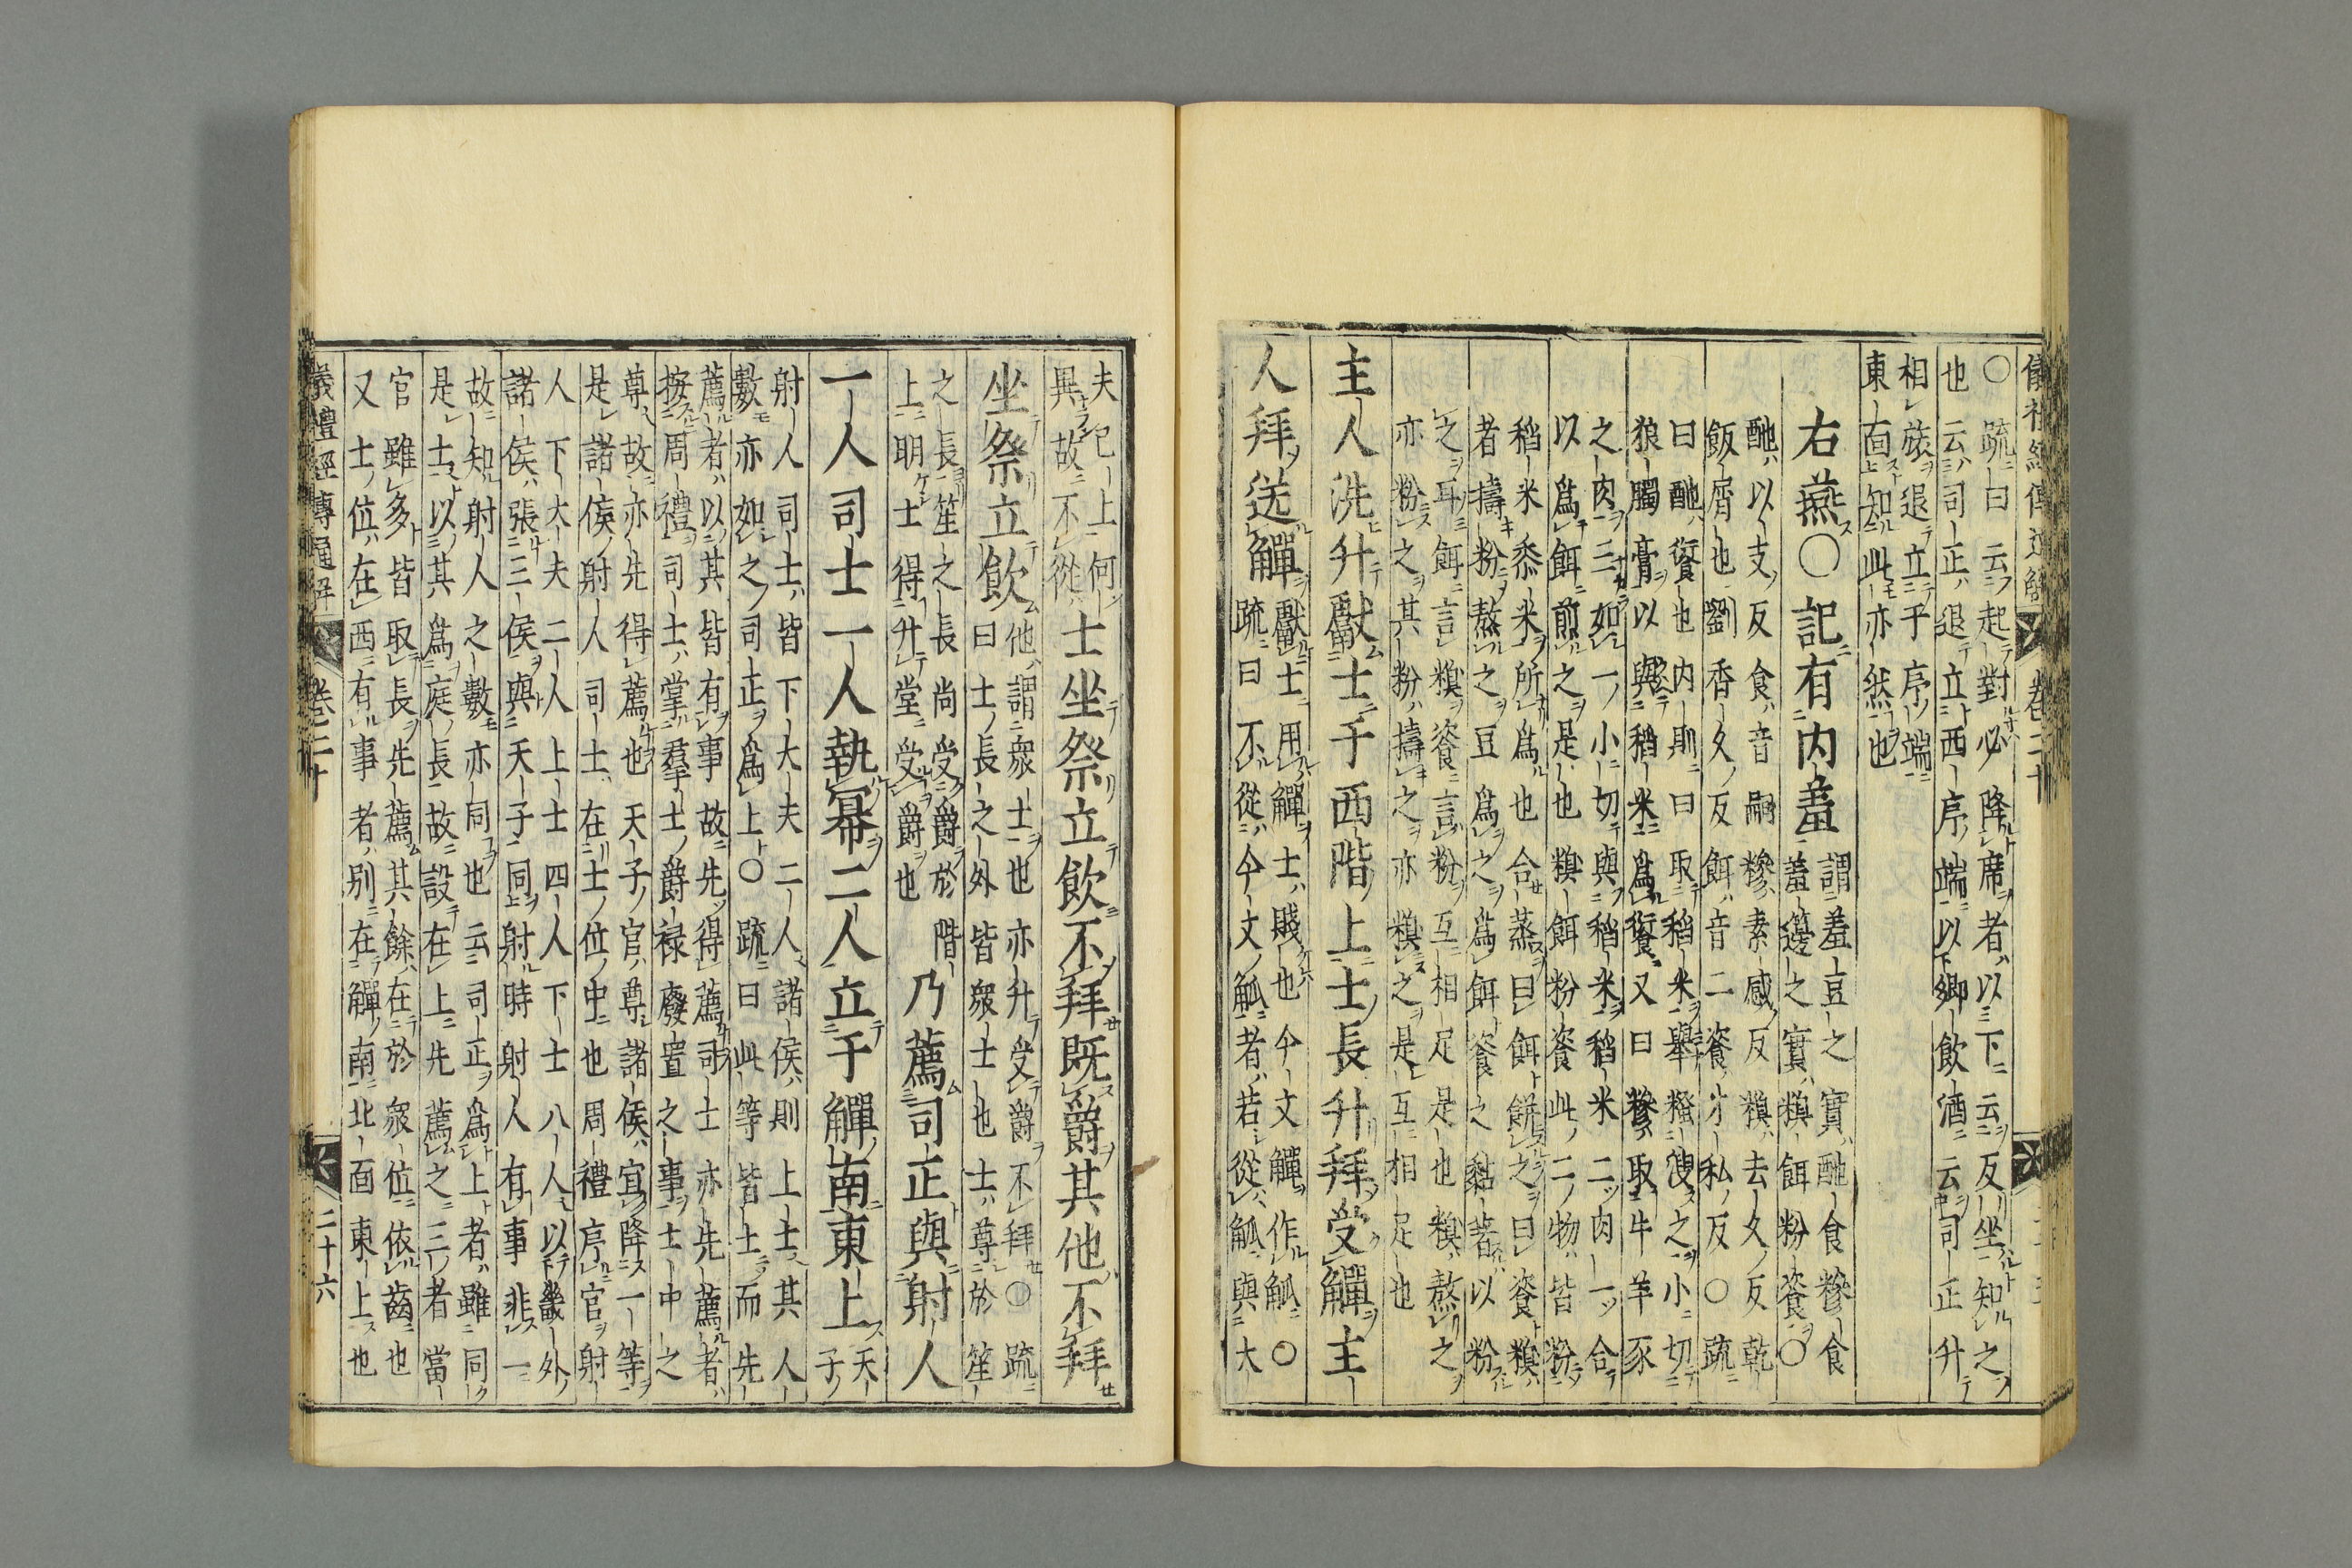 儀禮經傳通解　卷二十
○疏曰云起對必降席者以下云反坐知之
也云司正退立西序端以卿飲酒云司正升
相旅退立于序端
東面知此亦然也
右燕○記有内羞
謂羞豆之實酏食糝食
羞籩之實糗餌粉餈○
酏以支反食音嗣糝素感反糗去久反乾
飯屑也劉香久反餌音二餈才私反○疏
曰酏餰也内則曰取稻米舉糔溲之小切
狼臅膏以與稻米爲餰又曰糝取牛羊豕
之肉三如一小切與稻米稻米二肉一合
以爲餌煎之是也糗餌粉餈此二物皆粉
稻米黍米所爲也合蒸曰餌餅之曰餈糗
者擣粉熬之豆爲之爲餌餈之黏著以粉
之耳餌言糗餈言粉互相足是也糗熬之
亦粉之其粉擣之亦糗之是互相足也
主人洗升獻士于西階上士長升拜受觶主
人拜送觶
獻士用觶士賤也今文觶作觚○
疏曰不從今文觚者若從觚與大
夫已上何
異故不從
士坐祭立飲不拜既爵其他不拜
坐祭立飲
他謂衆士也亦升受爵不拜○疏
曰士長之外皆衆士也士尊於笙
之長笙之長尚受爵於階
上明士得升堂受爵也
乃薦司正與射人
一人司士一人執冪二人立于觶南東上
天
子
射人司士皆下大夫二人諸侯則上士其人
數亦如之司正爲上○疏曰此等皆士而先
薦者以其皆有事故先得薦司士亦先薦者
按周禮司士掌羣士爵祿廢置之事士中之
尊故亦先得薦也天子官尊諸侯宜降一等
是諸侯射人司士在士位中也周禮序官射
人下大夫二人上士四人下士八人以畿外
諸侯張三侯與天子同射時射人有事非一
故知射人之數亦同也云司正爲上者雖同
是士以其爲庭長故設在上先薦之三者當
官雖多皆取長先薦其餘在於衆位依齒也
又士位在西有事者別在觶南北面東上也
儀禮經傳通解　卷二十　二十六